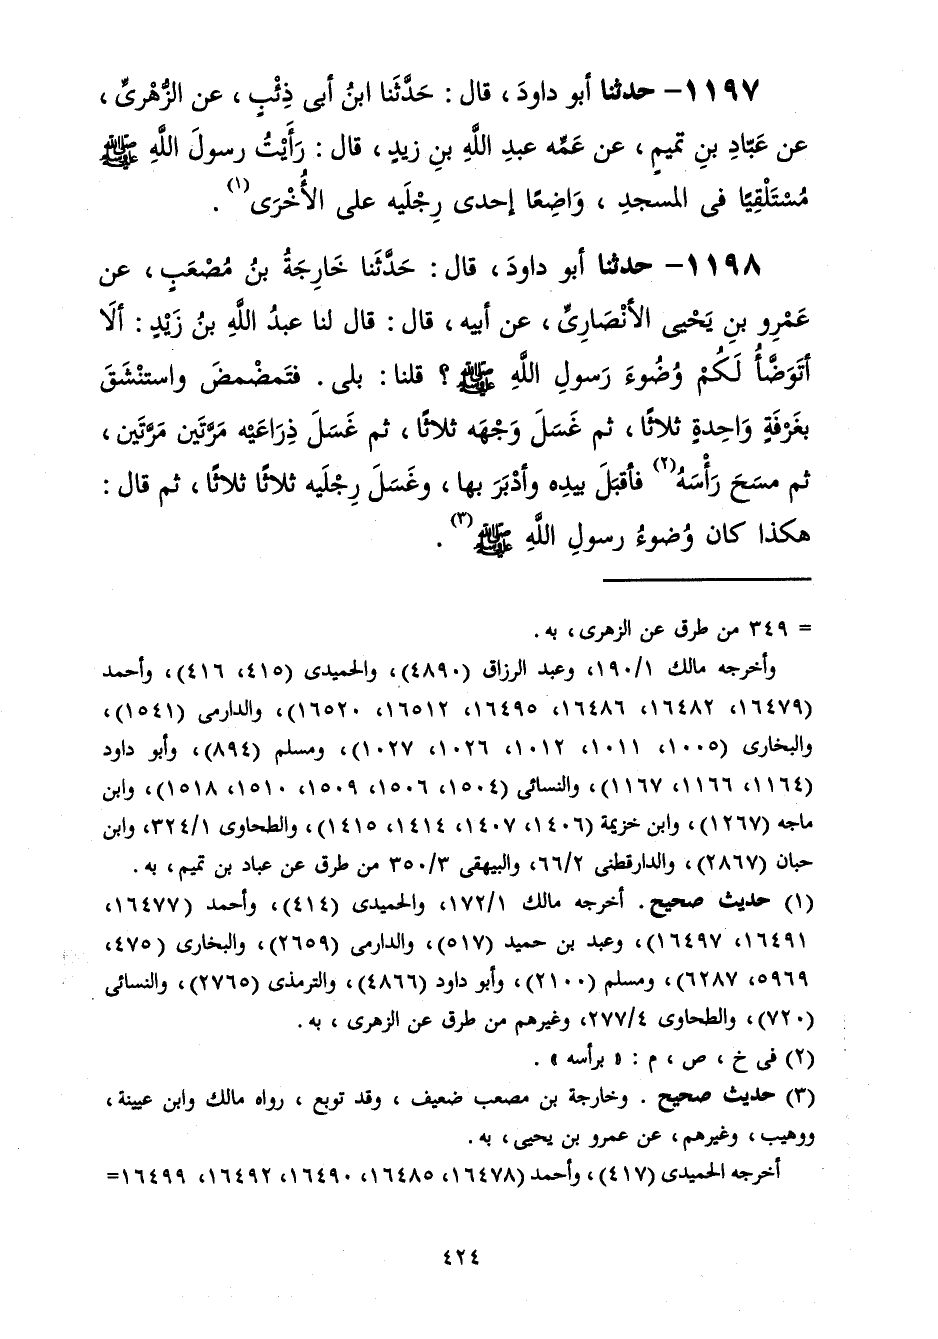 ١١٩٧- حدثنا أبو داودَ ، قال : حَدَّثَنا ابنُ أبى ذِئْبٍ ، عن الزُّهْرىِّ ،
عن عَبّادِ بنِ تميمٍ ، عن عَمِّه عبدِ اللَّهِ بنِ زيدٍ ، قال : رَأَيْتُ رسولَ اللَّهِ ﷺ
مُسْتَلْقِيًا فى المسجدِ ، وَاضِعًا إحدى رِجْلَيه على الأُخْرَى(١) .
١١٩٨- حدثنا أبو داودَ ، قال : حَدَّثَنا خَارِجَةُ بنُ مُصْعَبٍ ، عن
عَمْرِو بنِ يَحْيى الأنْصَارىِّ ، عن أبيه ، قال : قال لنا عبدُ اللَّهِ بنُ زَيْدٍ : ألَا
أتَوَضَّأُ لَكُمْ وُضُوءَ رَسولِ اللَّهِ ﷺ ؟ قلنا : بلى . فتَمضْمضَ واستنْشَقَ
بغَرْفَةٍ وَاحِدةٍ ثلاثًا ، ثم غَسَلَ وَجْهَه ثلاثًا ، ثم غَسَلَ ذِرَاعَيْه مَرَّتَين مَرَّتَين ،
ثم مسَحَ رَأْسَهُ(٢) فأقبَلَ بيدِه وأدْبَرَ بها ، وغَسَلَ رِجْلَيه ثلاثًا ثلاثًا ، ثم قال :
هكذا كان وُضوءُ رسولِ اللَّهِ ﷺ(٣) .
= ٣٤٩ من طرق عن الزهرى ، به .
وأخرجه مالك ١٩٠/١، وعبد الرزاق (٤٨٩٠)، والحميدى (٤١٥، ٤١٦)، وأحمد
(١٦٤٧٩، ١٦٤٨٢، ١٦٤٨٦، ١٦٤٩٥، ١٦٥١٢، ١٦٥٢٠)، والدارمى (١٥٤١)،
والبخارى (١٠٠٥، ١٠١١، ١٠١٢، ١٠٢٦، ١٠٢٧)، ومسلم (٨٩٤)، وأبو داود
(١١٦٤، ١١٦٦، ١١٦٧)، والنسائى (١٥٠٤، ١٥٠٦، ١٥٠٩، ١٥١٠، ١٥١٨)، وابن
ماجه (١٢٦٧)، وابن خزيمة (١٤٠٦، ١٤٠٧، ١٤١٤، ١٤١٥)، والطحاوى ٣٢٤/١، وابن
حبان (٢٨٦٧)، والدارقطنى ٦٦/٢، والبيهقى ٣٥٠/٣ من طرق عن عباد بن تميم ، به .
(١) حديث صحيح . أخرجه مالك ١٧٢/١، والحميدى (٤١٤)، وأحمد (١٦٤٧٧،
١٦٤٩١، ١٦٤٩٧)، وعبد بن حميد (٥١٧)، والدارمى (٢٦٥٩)، والبخارى (٤٧٥،
٥٩٦٩، ٦٢٨٧)، ومسلم (٢١٠٠)، وأبو داود (٤٨٦٦)، والترمذى (٢٧٦٥)، والنسائى
(٧٢٠)، والطحاوى ٢٧٧/٤، وغيرهم من طرق عن الزهرى ، به .
(٢) فى خ ، ص ، م : « برأسه » .
(٣) حديث صحيح . وخارجة بن مصعب ضعيف ، وقد توبع ، رواه مالك وابن عيينة ،
ووهيب ، وغيرهم ، عن عمرو بن يحيى ، به .
أخرجه الحميدى (٤١٧)، وأحمد (١٦٤٧٨، ١٦٤٨٥، ١٦٤٩٠، ١٦٤٩٢، ١٦٤٩٩=
٤٢٤